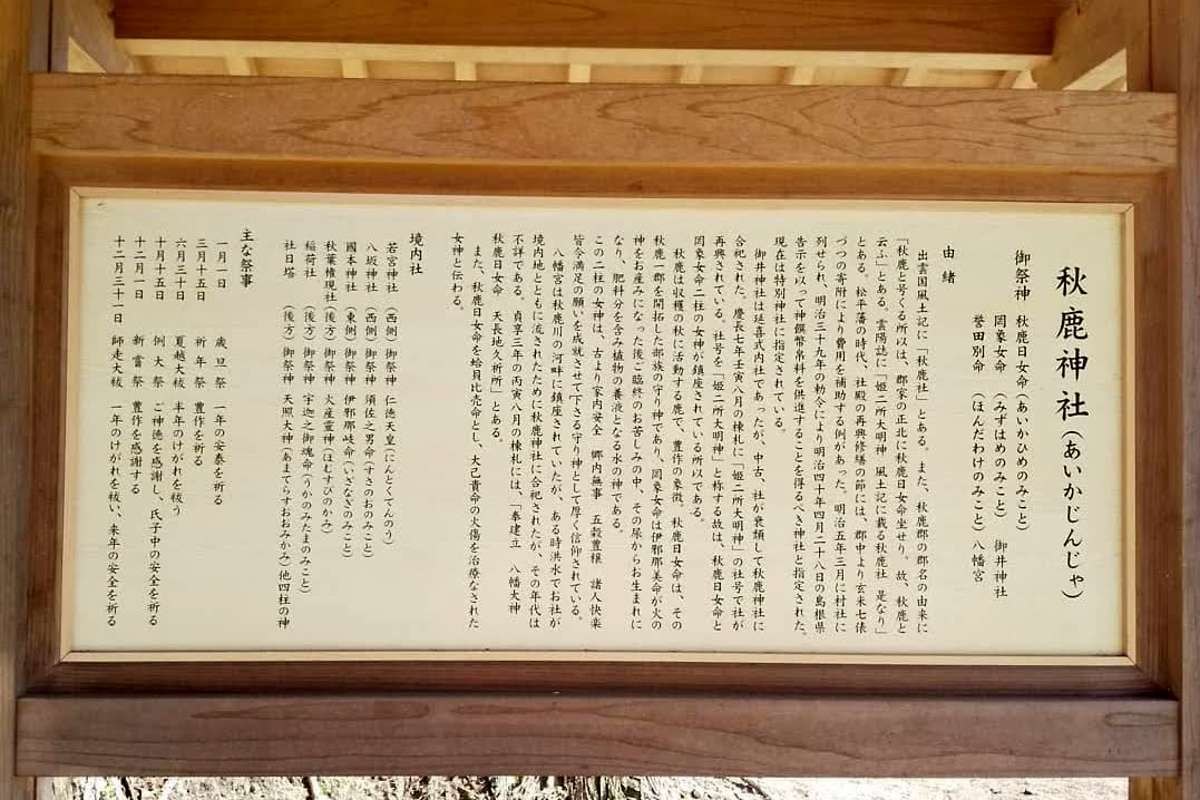 秋鹿神社(あいかじんじゃ)
御祭神 秋鹿日女命(あいかひめのみこと)
罔象女命(みずはめのみこと) 御井神社
誉田別命(ほんだわけのみこと) 八幡宮
由緒
出雲国風土記に「秋鹿社」とある。また、秋鹿郡の郡名の由来に
「秋鹿と号くる所以は、郡家の正北に秋鹿日女命坐せり。故、秋鹿と
云ふ」とある。雲陽誌に「姫二所大明神 風土記に載る秋鹿社 是なり」
とある。松平藩の時代、社殿の再興修繕の節には、郡中より玄米七俵
づつの寄附により費用を補助する例があった。明治五年三月に村社に
列せられ、明治三十九年の勅令により明治四十年四月二十八日の島根県
告示を以って神饌幣帛料を供進することを得るべき神社と指定された。
現在は特別神社に指定されている。
御井神社は延喜式内社であったが、中古、社が衰頽して秋鹿神社に
合祀された。慶長七年壬寅八月の棟札に「姫二所大明神」の社号で社が
再興されている。社号を「姫二所大明神」と称する故は、秋鹿日女命と
罔象女命二柱の女神が鎮座されている所以である。
秋鹿は収穫の秋に活動する鹿で、豊作の象徴。秋鹿日女命は、その
秋鹿一郡を開拓した部族の守り神であり、罔象女命は伊邪那美命が火の
神をお産みになった後ご臨終のお苦しみの中、その尿からお生まれに
なり、肥料分を含み植物の養液となる水の神である。
この二柱の女神は、古より家内安全 郷内無事 五穀豊穣 諸人快楽
皆令満足の願いを成就させて下さる守り神として厚く信仰されている。
八幡宮は秋鹿川の河畔に鎮座されていたが、ある時洪水でお社が
境内地とともに流されたために秋鹿神社に合祀されたが、その年代は
不詳である。貞享三年の丙寅八月の棟札には、「奉建立 八幡大神
秋鹿日女命 天長地久祈所」とある。
また、秋鹿日女命を蛤貝比売命とし、大己貴命の火傷を治療なされた
女神と伝わる。
境内社
若宮神社 (西側) 御祭神 仁徳天皇(にんとくてんのう)
八坂神社 (西側) 御祭神 須佐之男命(すさのおのみこと)
國本神社 (東側) 御祭神 伊邪那岐命(いざなぎのみこと)
秋葉権現社(後方) 御祭神 火産霊神(ほむすびのかみ)
稲荷社 (後方) 御祭神 宇迦之御魂命(うかのみたまのみこと)
社日塔 (後方) 御祭神 天照大神(あまてらすおおみかみ)他四柱の神
主な祭事
一月一日 歳旦祭 一年の安泰を祈る
三月十五日 祈年祭 豊作を祈る
六月三十日 夏越大祓 半年のけがれを祓う
十月十五日 例大祭 ご神徳を感謝し、氏子中の安全を祈る
十二月一日 新嘗祭 豊作を感謝する
十二月三十一日 師走大祓 一年のけがれを祓い、来年の安全を祈る